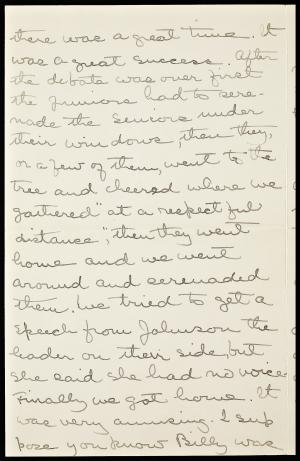 there was a great time. It
was a great success. After
the debate was over first
the Juniors had to sere-
nade the Seniors under
their windows, then they,
or a few of them, went to the
tree and cheered where we
gathered "at a respectful
distance", then they went
home and we went
around and serenaded
them. We tried to get a
speech from Johnson the
leader on their side, but
she said she had no voice.
Finally we got home. It
was very amusing. I sup
pose you know Billy was